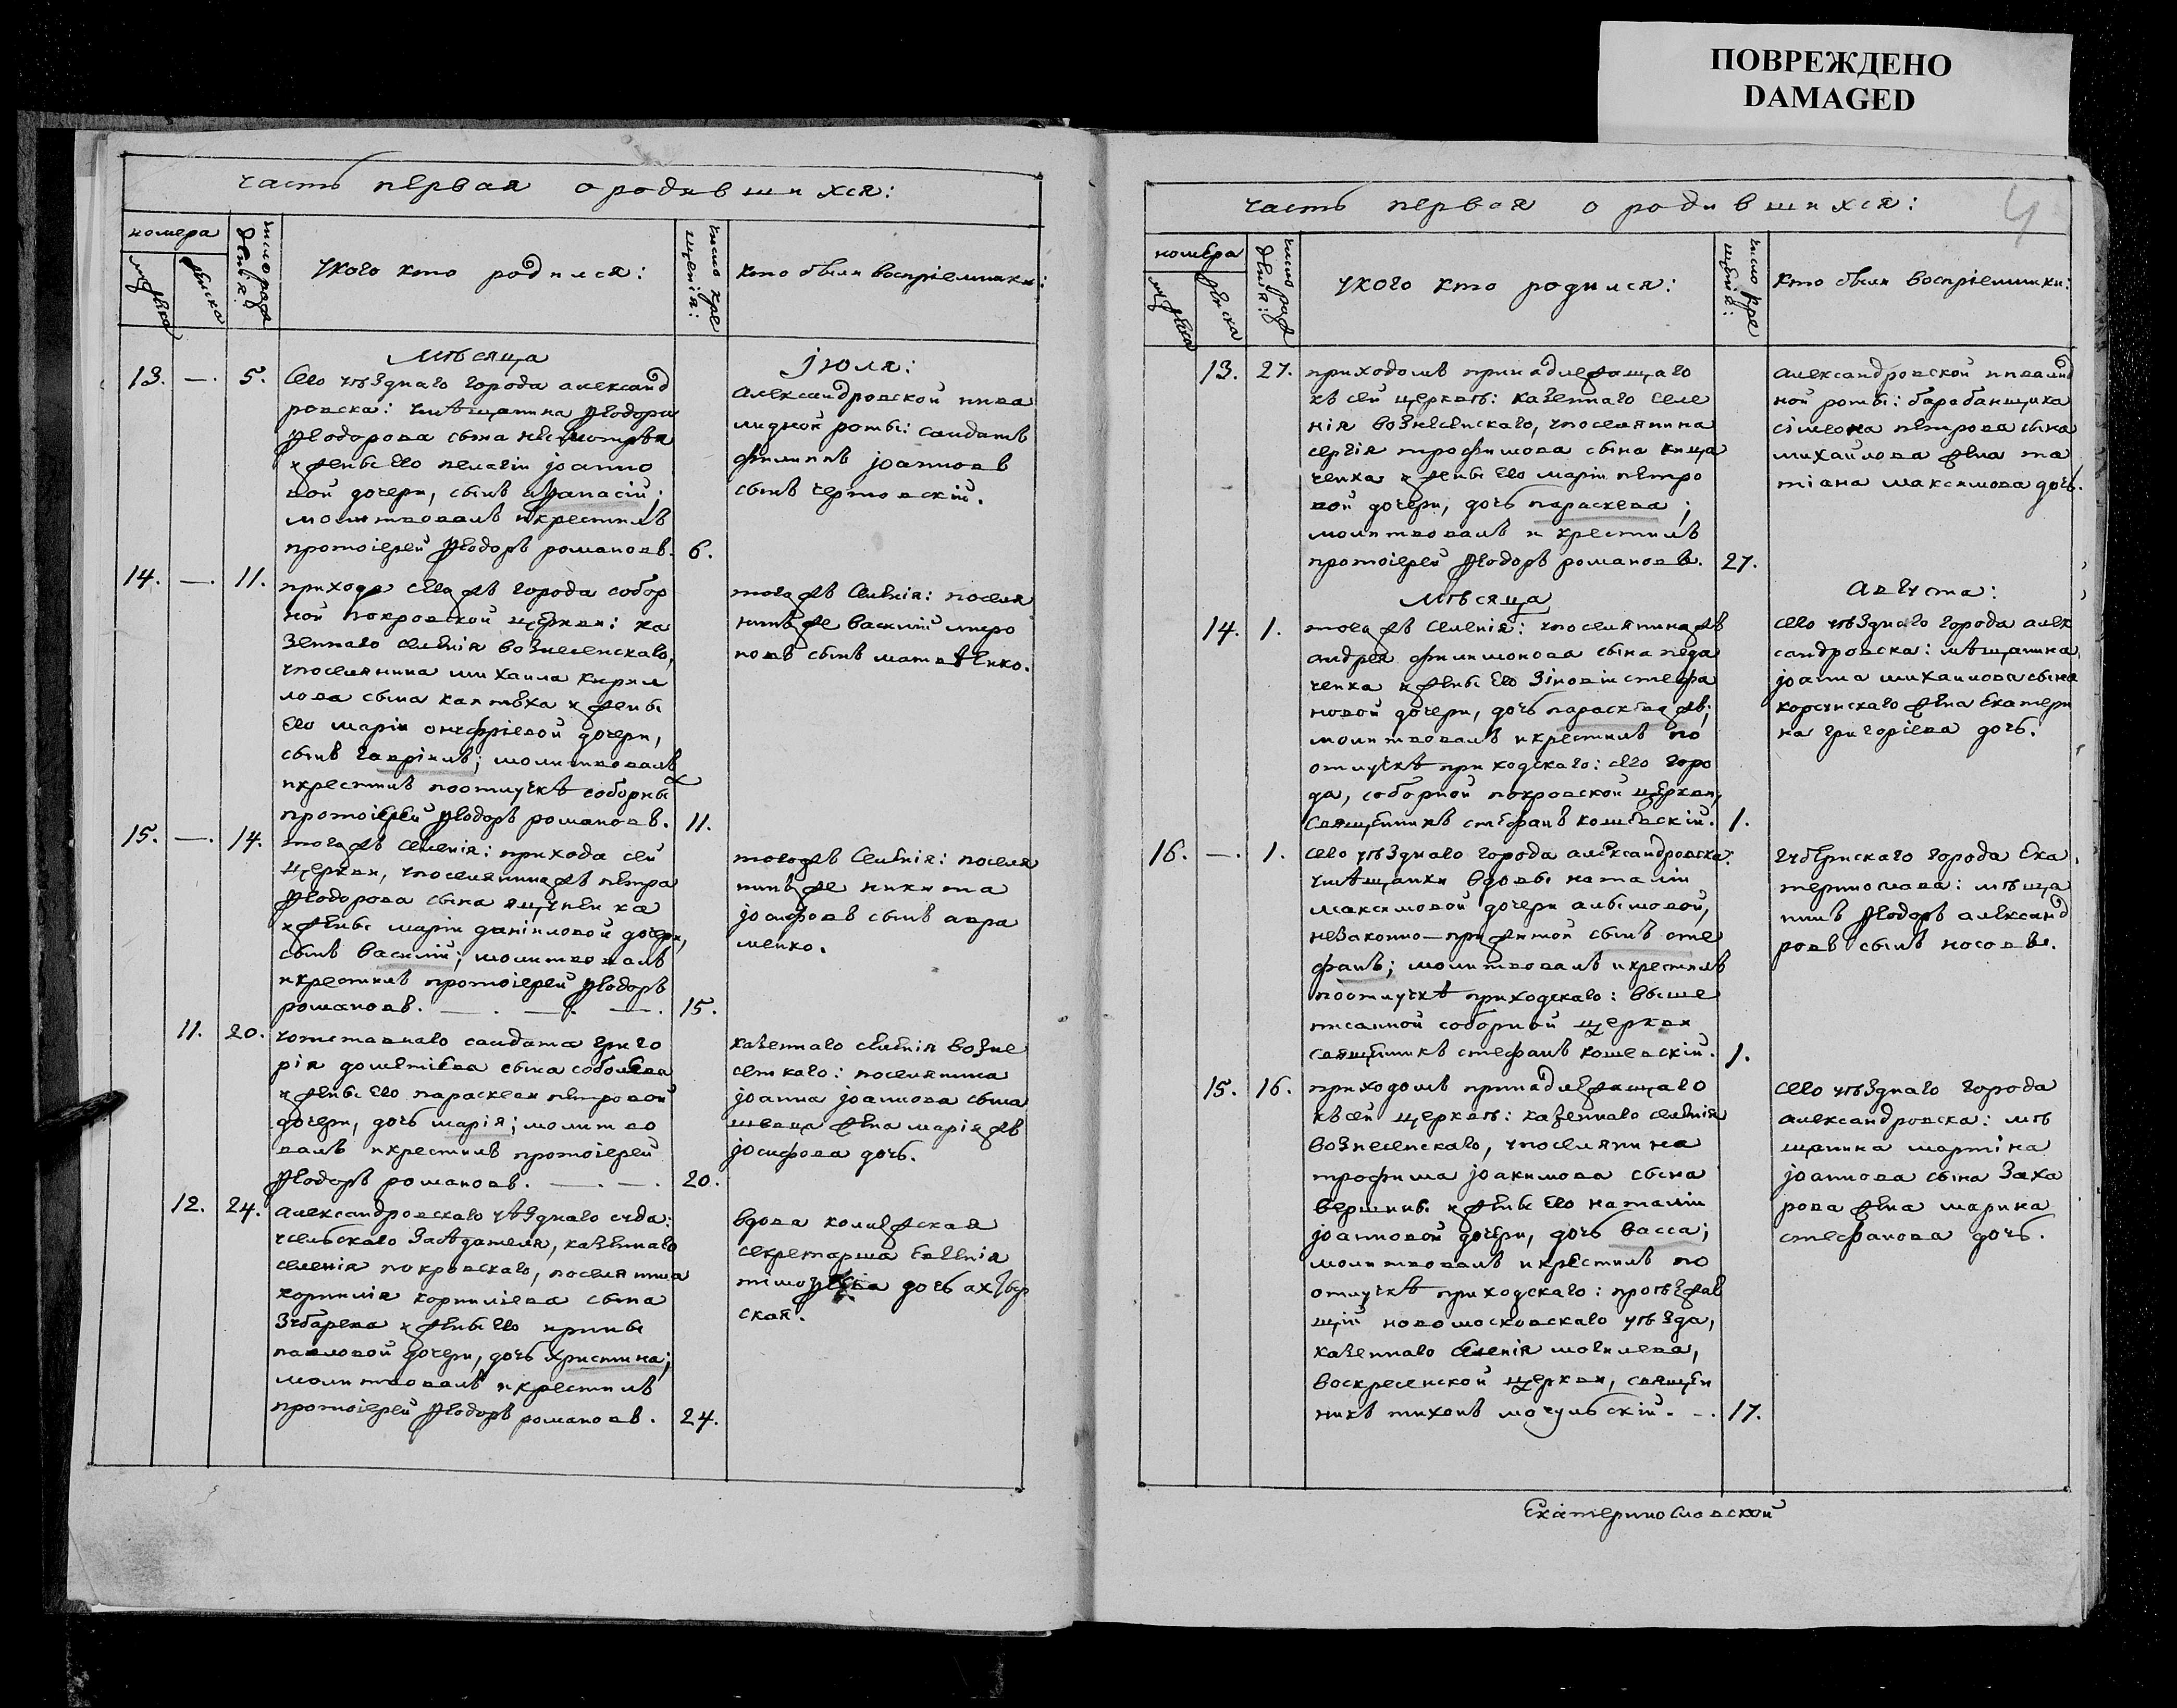 ПОВРЕЖДЕНО
DAMAGED
часть первая о родившихся:
номера
мужеска
женска
число рож
денія:
Укого кто родился:
число кре
щенія:
кто были воспріемники:
Мѣсяца
Іюля:
13. —. 5.
Сего уѣзднаго города александ
ровска: умѣщанина Ѳеодора
Ѳеодорова сына
и жены его пелагіи іоанно
вой дочери, сынъ аѳанасій;
молитвовалъ и крестилъ
протоіерей Ѳеодоръ романовъ. 6.
александровской инва
лидной роты: салдатъ
филиппъ іоанновъ
сынъ
14. —. 11.
прихода сегожъ города собор
ной покровской церкви: ка
зеннаго селенія вознесенскаго,
упоселянина михаила кирил
лова сына и жены
его маріи онуфріевой дочери,
сынъ гавріилъ; молитвовалъ
и крестилъ поотпускѣ соборны
протоіерей Ѳеодоръ романовъ. 11.
тогожъ селенія: поселя
нинъже василій миро
новъ сынъ матвѣенко.
15. —. 14.
тогожъ селенія: прихода сей
церкви, упоселянинажъ петра
Ѳеодорова сына
и жены маріи даніиловой дочери,
сынъ василій; молитвовалъ
и крестилъ протоіерей Ѳеодоръ
романовъ. —. —. —. 15.
тогожъ селенія: поселя
нинъже никита
іосифовъ сынъ авра
менко.
11. 20.
уотставнаго салдата григо
рія дометіева сына соболева
и жены его параскеви петровой
дочери, дочь марія; молитво
валъ и крестилъ протоіерей
Ѳеодоръ романовъ. —. —. 20.
казеннаго селенія возне
сенскаго: поселянина
іоанна іоаннова сына
швеца жена маріяжъ
іосифова дочь.
12. 24.
александровскаго уѣзднаго суда:
усельскаго засѣдателя, казеннаго
селенія покровскаго, поселянина
корнилія корниліева сына
Зубарева и жены его ирины
павловой дочери, дочь христина;
молитвовалъ и крестилъ
протоіерей Ѳеодоръ романовъ. 24.
вдова колежская
секретарша Евгенія
тимоѳеева дочь
ская.
4
часть первая о родившихся:
номера
мужеска
женска
число рож
денія:
укого кто родился:
число кре
щенія:
кто были воспріемники:
13. 27.
приходомъ принадлежащаго
къ сей церквѣ: казеннаго селе
нія вознесенскаго, упоселянина
сергія трофимова сына кища
ченка и жены его маріи петро
вой дочери, дочь параскева;
молитвовалъ и крестилъ
протоіерей Ѳеодоръ романовъ. 27.
александровской инвалид
ной роты: барабанщика
сімеона петрова сына
михайлова жена та
тіана максимова дочь.
Мѣсяца
Августа:
14. 1.
тогожъ селенія: упоселянинажъ
андрея филимонова сына педа
ченка и жены его Зіновіи стефа
новой дочери, дочь параскеважъ;
молитвовалъ и крестилъ по
отпускѣ приходскаго: сего горо
да, соборной покровской церкви,
священникъ стефанъ кошевскій. 1.
сего уѣзднаго города алек
сандровска: мѣщанина
іоанна михаилова сына
корсунскаго жена Екатери
на григоріева дочь.
16. —. 1.
сего уѣзднаго города александровска:
умѣщанки вдовы наталіи
максимовой дочери алымовой,
незаконно—прижитой сынъ сте
фанъ; молитвовалъ и крестилъ
поотпускѣ приходскаго: выше
писанной соборной церкви
священникъ стефанъ кошевскій. 1.
губернскаго города Ека
теринослава: мѣща
нинъ Ѳеодоръ александ
ровъ сынъ носовъ.
15. 16.
приходомъ принадлежащаго
къ сей церквѣ: казеннаго селенія
вознесенскаго, упоселянина
трофима іоакимова сына
вершины и жены его наталіи
іоанновой дочери, дочь васса;
молитвовалъ и крестилъ по
отпускѣ приходскаго: проѣзжав
щій новомосковскаго уѣзда,
казеннаго селенія могилева,
воскресенской церкви, священ
никъ тихонъ мочульскій. —. 17.
сего уѣзднаго города
александровска: мѣ
щанина мартина
іоаннова сына Заха
рова жена марина
стефанова дочь.
Екатеринославской